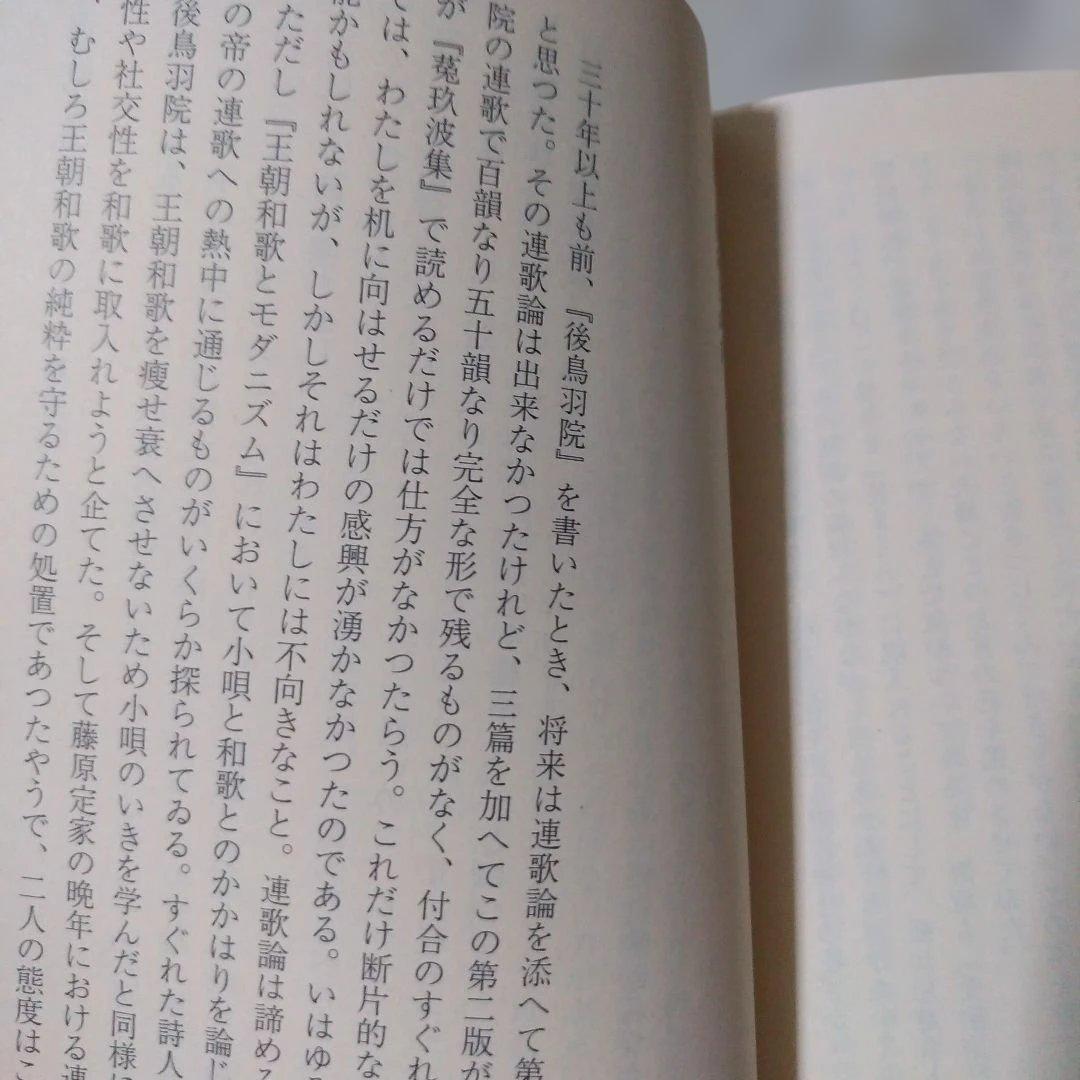 三十年以上も前、『後鳥羽院』を書いたとき、将来は連歌論を添へて第
と思つた。その連歌論は出来なかつたけれど、三篇を加へてこの第二版が
院の連歌で百韻なり五十韻なり完全な形で残るものがなく、付合のすぐれ
が『菟玖波集』で読めるだけでは仕方がなかつたらう。これだけ断片的な
ては、わたしを机に向はせるだけの感興が湧かなかつたのである。いはゆ
能かもしれないが、しかしそれはわたしには不向きなこと。連歌論は諦め
ただし『王朝和歌とモダニズム』において小唄と和歌とのかかはりを論じ
の帝の連歌への熱中に通じるものがいくらか探られてゐる。すぐれた詩人
後鳥羽院は、王朝和歌を痩せ衰へさせないため小唄のいきを学んだと同様に
性や社交性を和歌に取入れようと企てた。そして藤原定家の晩年における連
、むしろ王朝和歌の純粋を守るための処置であつたやうで、二人の態度はこ